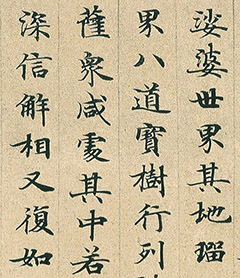 娑婆世界其地瑠
界八道寶樹行列
薩衆咸處其中若
深信解相又復如